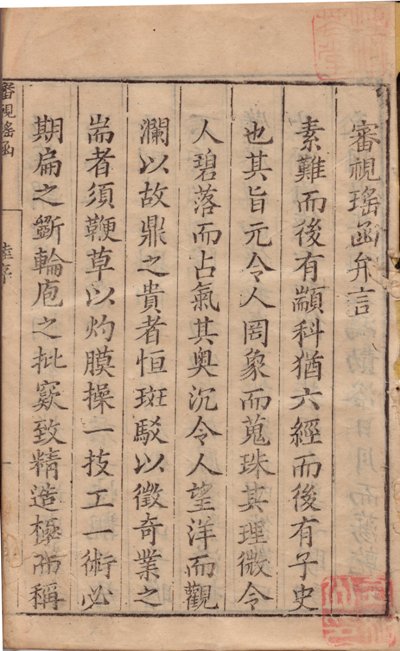 審視瑤函弁言
素難而後有顓科猶六經而後有子史
也其旨元令人罔象而蒐珠其理微令
人碧落而占氣其奧沉令人望洋而觀
瀾以故鼎之貴者恒斑駁以徵奇業之
耑者須鞭草以灼膜操一技工一術必
期扁之斲輪庖之批窾致精造極而稱
審視瑤函
序